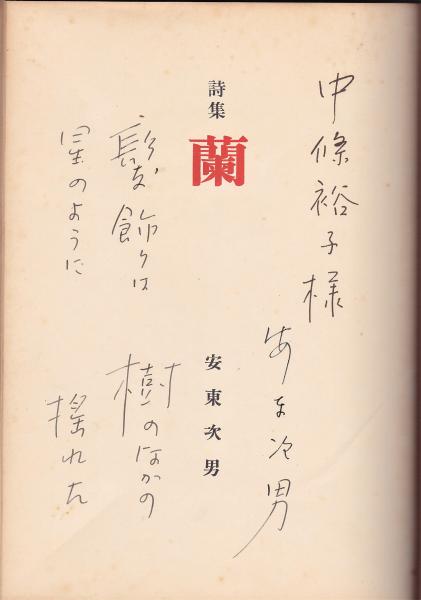 中條裕子様
安東次男
詩集
蘭
安東次男
髪飾りは
樹のなかの
星のように
揺れた